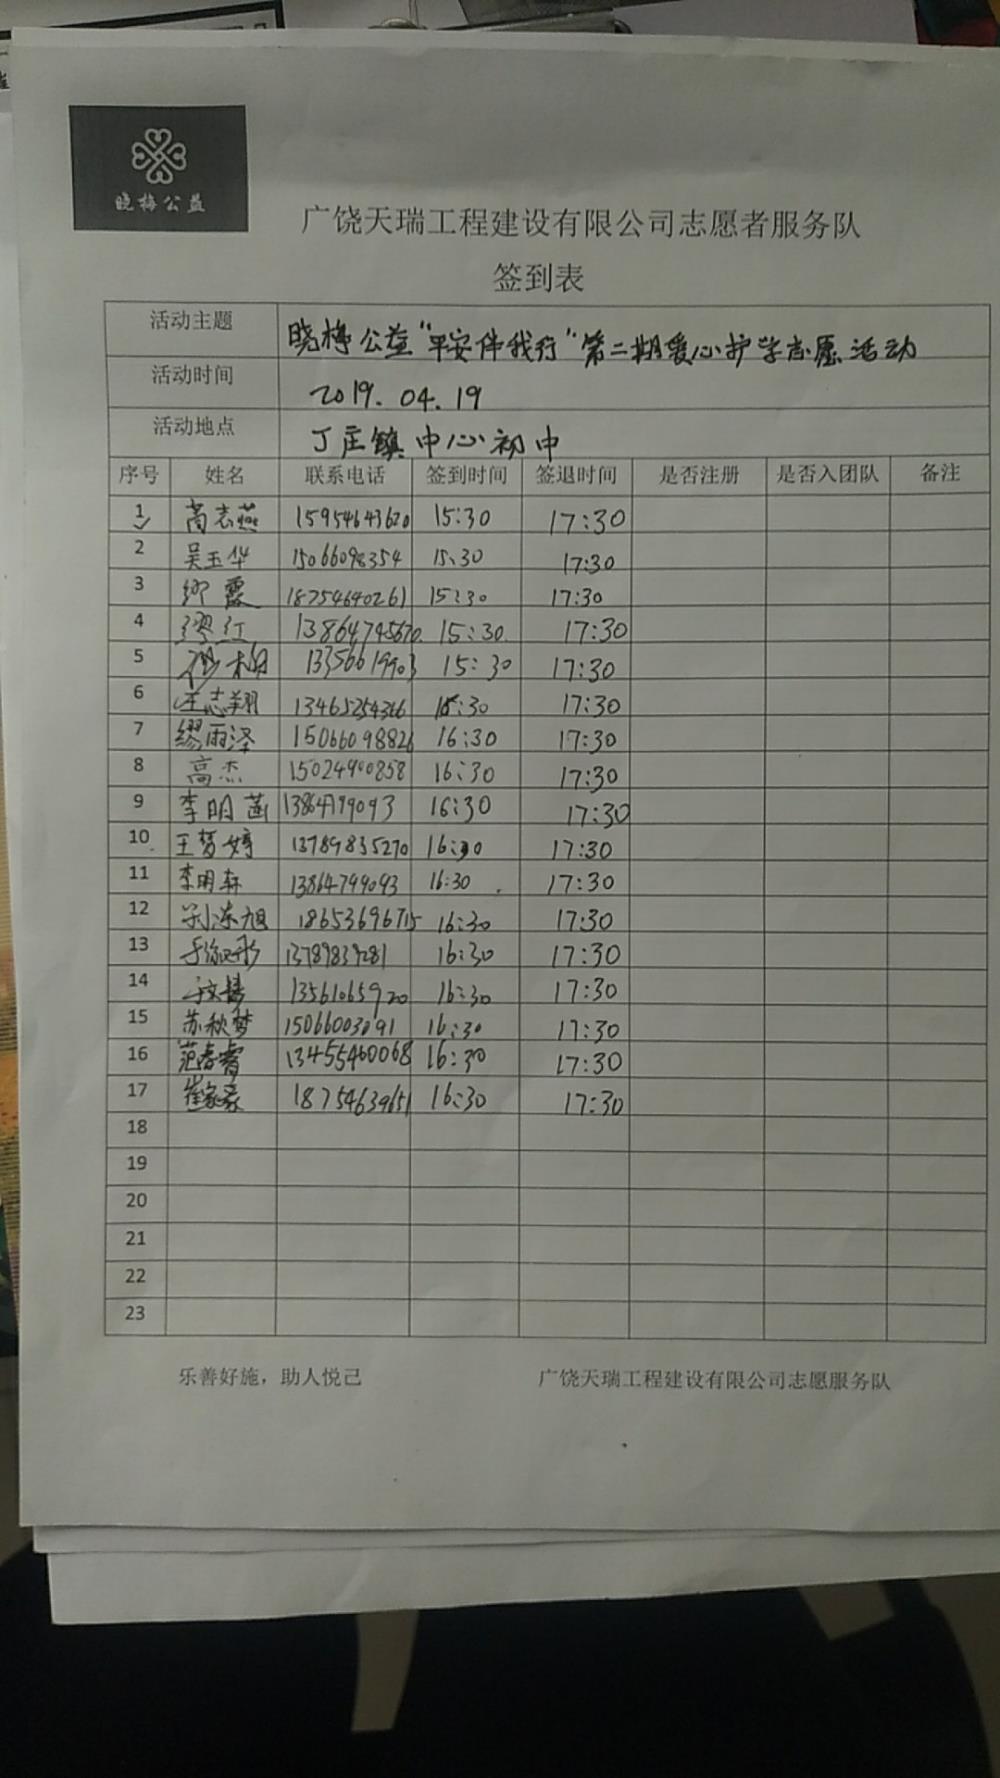 晓梅公益
广饶天瑞工程建设有限公司志愿者服务队
签到表
活动主题 晓梅公益"平安伴我行"第二期爱心护学志愿活动
活动时间 2019.04.19
活动地点 丁庄镇中心初中
序号 姓名 联系电话 签到时间 签退时间 是否注册 是否入团队 备注
1 高志燕 15954643620 15:30 17:30
2 吴玉华 15066098354 15:30 17:30
3 缪霞 18754640261 15:30 17:30
4 缪红 13864745670 15:30 17:30
5 13356619903 15:30 17:30
6 王志翔 13465254366 15:30 17:30
7 缪雨泽 15066098826 16:30 17:30
8 高杰 15024900858 16:30 17:30
9 李明菡 13864799093 16:30 17:30
10 王梦婷 13789835270 16:30 17:30
11 李明轩 13864799093 16:30 17:30
12 刘东旭 18653696715 16:30 17:30
13 13789839281 16:30 17:30
14 13561065920 16:30 17:30
15 苏秋梦 15066003091 16:30 17:30
16 范春睿 13455460068 16:30 17:30
17 崔家豪 18754639651 16:30 17:30
18
19
20
21
22
23
乐善好施，助人悦己 广饶天瑞工程建设有限公司志愿服务队